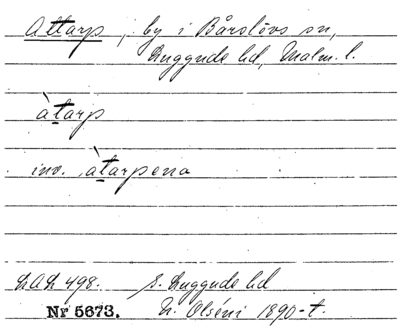 Attarp, by i Bårslövs sn,
Luggude hd, Malm. l.
àt̲arp
inv. àt̲arpena
LAL 498. S. Luggude hd
Nr 5673. N. Olséni 1890-t.